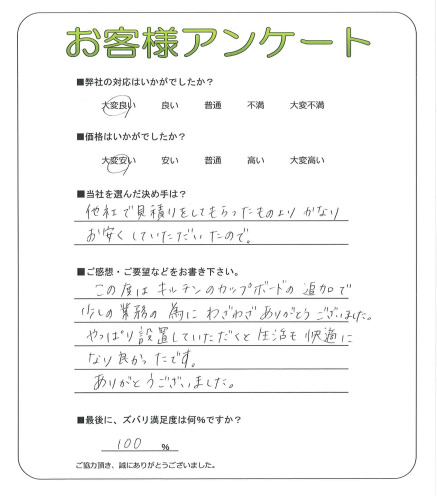 お客様アンケート
■弊社の対応はいかがでしたか？
大変良い 良い 普通 不満 大変不満
■価格はいかがでしたか？
大変安い 安い 普通 高い 大変高い
■当社を選んだ決め手は？
他社で見積りをしてもらったものより かなり
お安くしていただいたので。
■ご感想・ご要望などをお書き下さい。
この度は キッチンのカップボードの 追加で
少しの業務の 為に わざわざありがとうございました。
やっぱり設置していただくと 生活も 快適に
なり良かったです。
ありがとうございました。
■最後に、ズバリ満足度は何%ですか？
100 %
ご協力頂き、誠にありがとうございました。